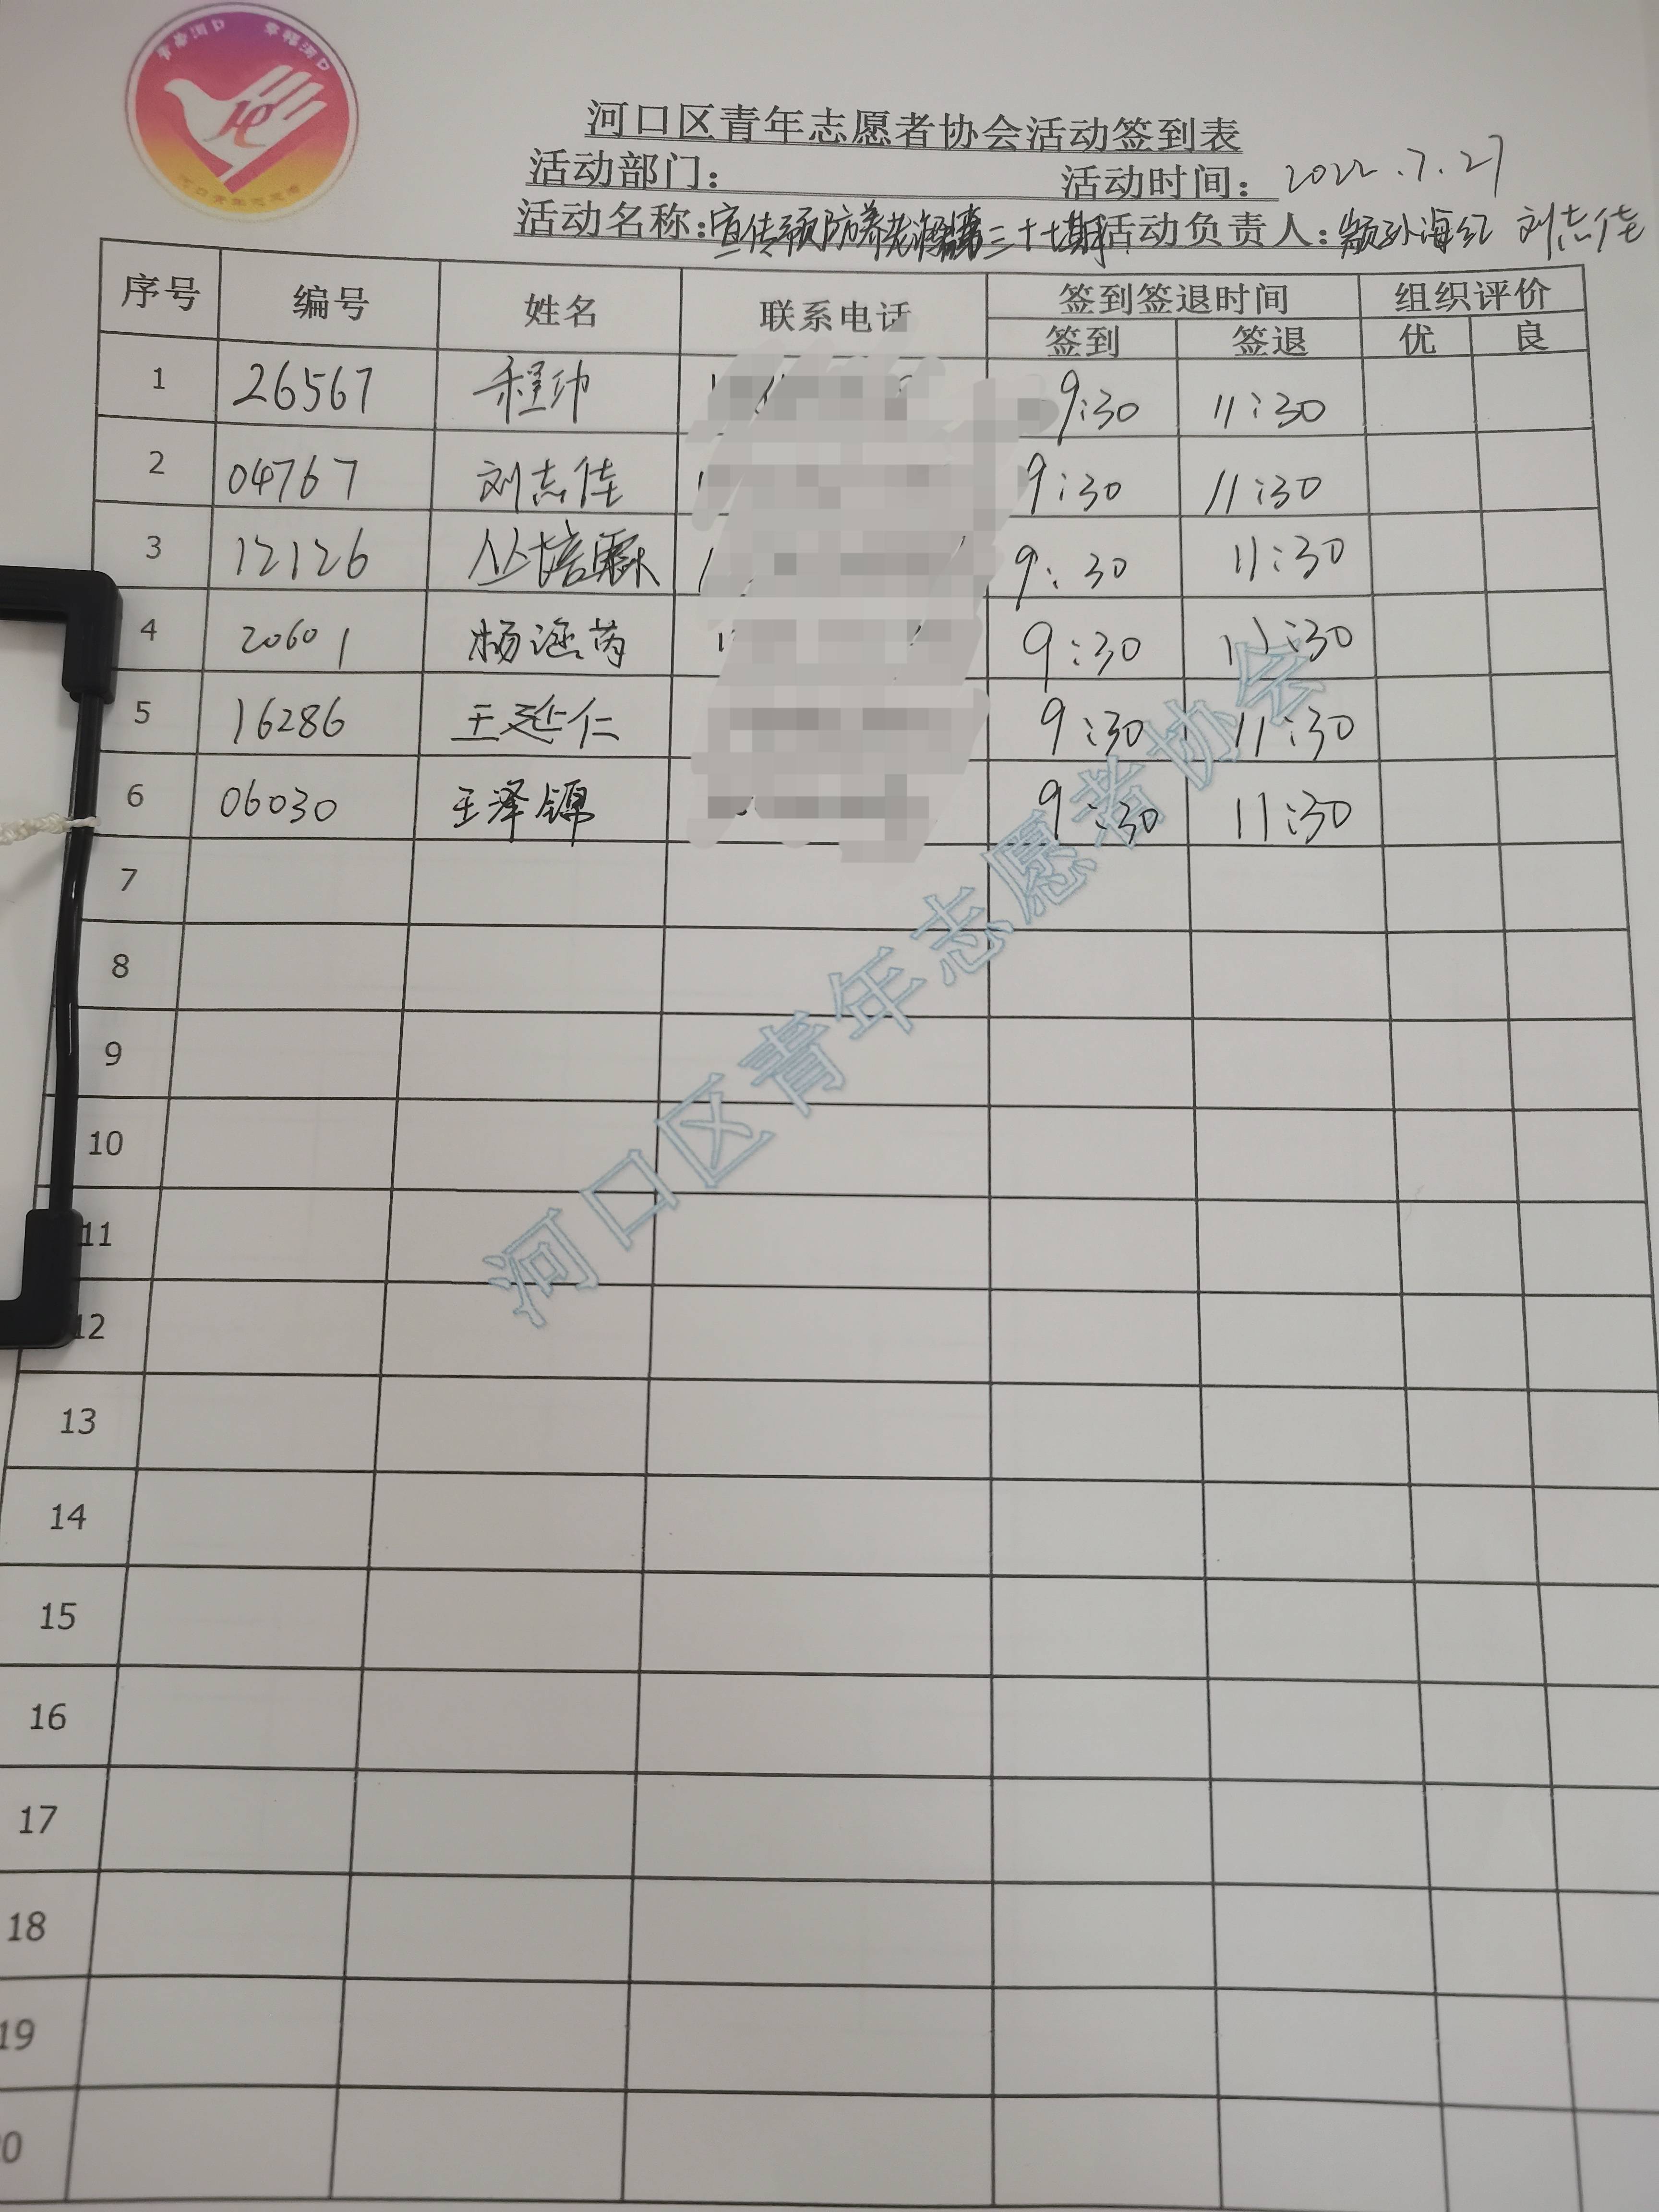 青春河口 幸福河口
河口区青年志愿者协会活动签到表
活动部门： 活动时间：2022.7.27
活动名称：宣传预防养老诈骗第三十七期 活动负责人：颛孙海红 刘志佳
序号 编号 姓名 联系电话 签到签退时间 组织评价
签到 签退 优 良
1 26567 程帅 9:30 11:30
2 04767 刘志佳 9:30 11:30
3 12126 丛培霖 9:30 11:30
4 20601 杨涵茜 9:30 11:30
5 16286 王延仁 9:30 11:30
6 06030 王泽锦 9:30 11:30
7
8
9
10
11
12
13
14
15
16
17
18
19
河口区青年志愿者协会